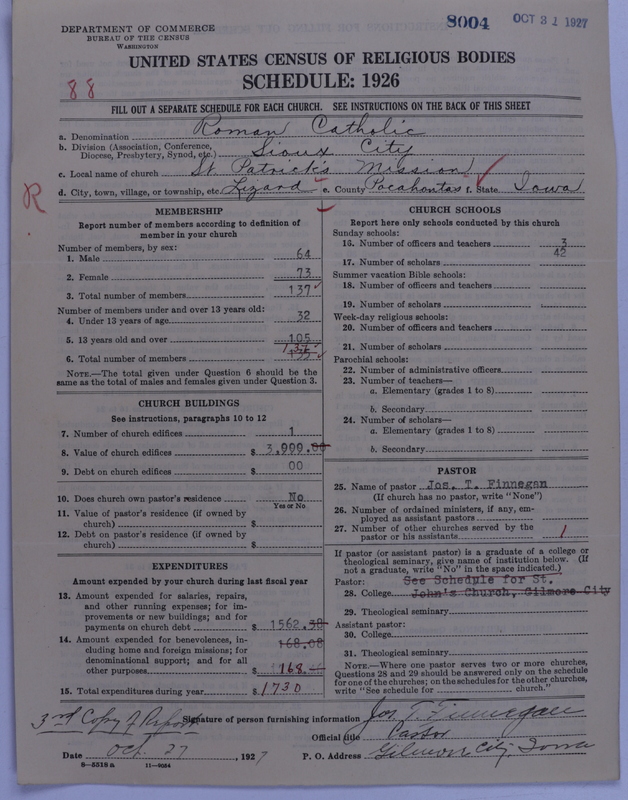 DEPARTMENT OF COMMERCE
BUREAU OF THE CENSUS
WASHINGTON
8004 OCT 31 1927
UNITED STATES CENSUS OF RELIGIOUS BODIES
SCHEDULE: 1926
88
FILL OUT A SEPARATE SCHEDULE FOR EACH CHURCH. SEE INSTRUCTIONS ON THE BACK OF THIS SHEET
a. Denomination Roman Catholic
b. Division (Association, Conference, Diocese, Presbytery, Synod, etc.) Sioux City
c. Local name of church St. Patrick's Mission
d. City, town, village, or township, etc. Lizard e. County Pocahontas f. State Iowa
R
MEMBERSHIP
Report number of members according to definition of
member in your church
Number of members, by sex:
1. Male 64
2. Female 73
3. Total number of members 137
Number of members under and over 13 years old:
4. Under 13 years of age 32
5. 13 years old and over 105
6. Total number of members 137
NOTE.—The total given under Question 6 should be the
same as the total of males and females given under Question 3.
CHURCH BUILDINGS
See instructions, paragraphs 10 to 12
7. Number of church edifices 1
8. Value of church edifices $ 3,000.00
9. Debt on church edifices $ 00
10. Does church own pastor's residence No
Yes or No
11. Value of pastor's residence (if owned by
church) $
12. Debt on pastor's residence (if owned by
church) $
EXPENDITURES
Amount expended by your church during last fiscal year
13. Amount expended for salaries, repairs,
and other running expenses; for im-
provements or new buildings; and for
payments on church debt $ 1562.38
14. Amount expended for benevolences, in- 168.08
cluding home and foreign missions; for
denominational support; and for all
other purposes $ 168.
15. Total expenditures during year $ 1730
CHURCH SCHOOLS
Report here only schools conducted by this church
Sunday schools:
16. Number of officers and teachers 3
17. Number of scholars 42
Summer vacation Bible schools:
18. Number of officers and teachers
19. Number of scholars
Week-day religious schools:
20. Number of officers and teachers
21. Number of scholars
Parochial schools:
22. Number of administrative officers
23. Number of teachers—
a. Elementary (grades 1 to 8)
b. Secondary
24. Number of scholars—
a. Elementary (grades 1 to 8)
b. Secondary
PASTOR
25. Name of pastor Jos. T. Finnegan
(If church has no pastor, write "None")
26. Number of ordained ministers, if any, em-
ployed as assistant pastors
27. Number of other churches served by the
pastor or his assistants 1
If pastor (or assistant pastor) is a graduate of a college or
theological seminary, give name of institution below. (If
not a graduate, write "No" in the space indicated.)
Pastor: See Schedule for St.
28. College John's Church, Gilmore City
29. Theological seminary
Assistant pastor:
30. College
31. Theological seminary
NOTE.—Where one pastor serves two or more churches,
Questions 28 and 29 should be answered only on the schedule
for one of the churches; on the schedules for the other churches,
write "See schedule for church."
3rd Copy of Report
Signature of person furnishing information Jos T. Finnegan
Official title Pastor
Date Oct. 27, 1927 P. O. Address Gilmore City, Iowa
8—5518a 11—9054